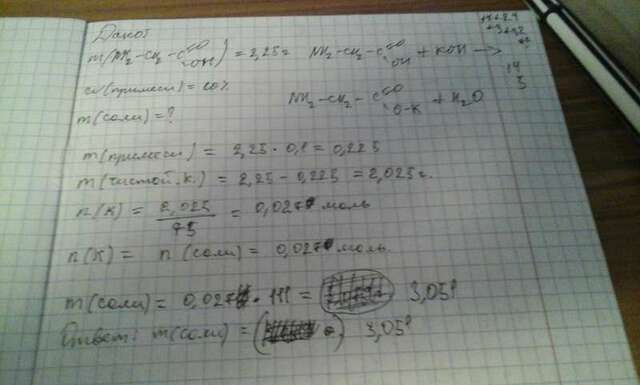 Дано:
m(NH₂-CH₂-C=O -OH) = 2,25г NH₂-CH₂-C=O OH + KOH →
w(примеси) = 10%
NH₂-CH₂-C=O O-K + H₂O
m(соли) = ?
m(примеси) = 2,25 · 0,1 = 0,225
m(чистой к.) = 2,25 - 0,225 = 2,025 г.
n(к) = 2,025/75 = 0,027 моль
n(к) = n(соли) = 0,027 моль.
m(соли) = 0,027 · 111 = 3,05г
Ответ: m(соли) = 3,05г